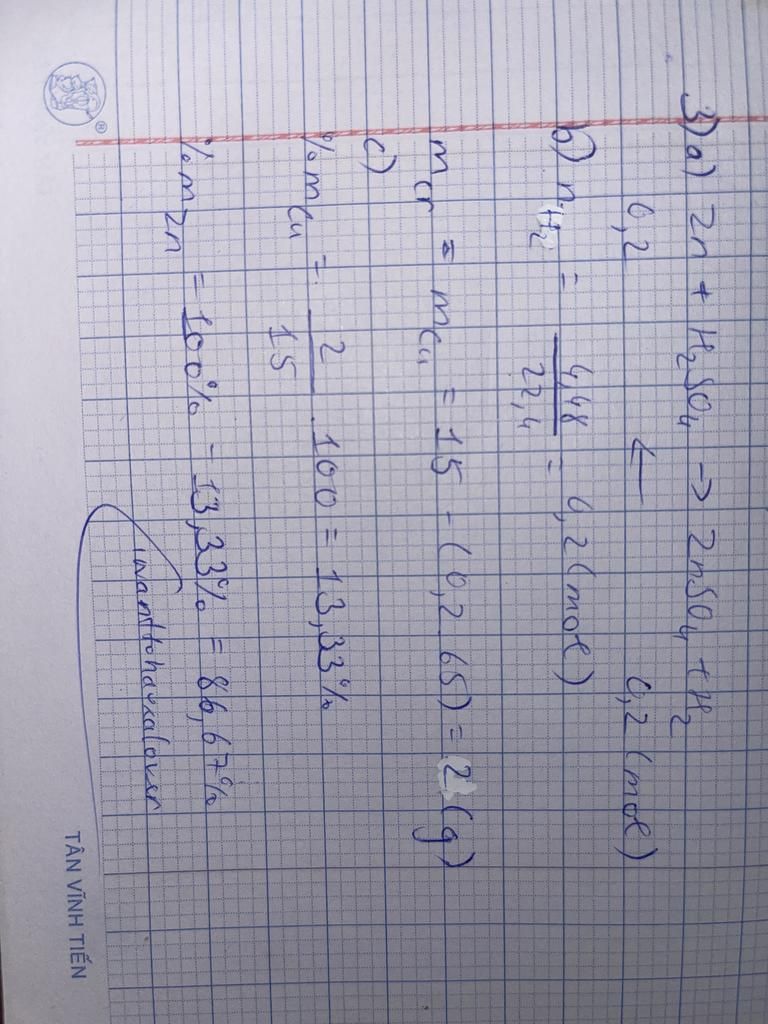 3) a) Zn + H2SO4 → ZnSO4 + H2
0,2 ← 0,2 (mol)
b) nH2 = 4,48/22,4 = 0,2 (mol)
mcr = mCu = 15 - (0,2.65) = 2 (g)
c)
%mCu = 2/15 . 100 = 13,33%
%mZn = 100% - 13,33% = 86,67%
iwanttohavealover
TÂN VĨNH TIẾN
®